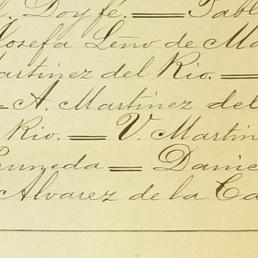 . Doyfé. — Pabl
Josefa Leño de Ma
artinez del Rio. —
— A. Martinez del
Rio. — V. Martin
Pruneda — Danie
Alvarez de la Ca